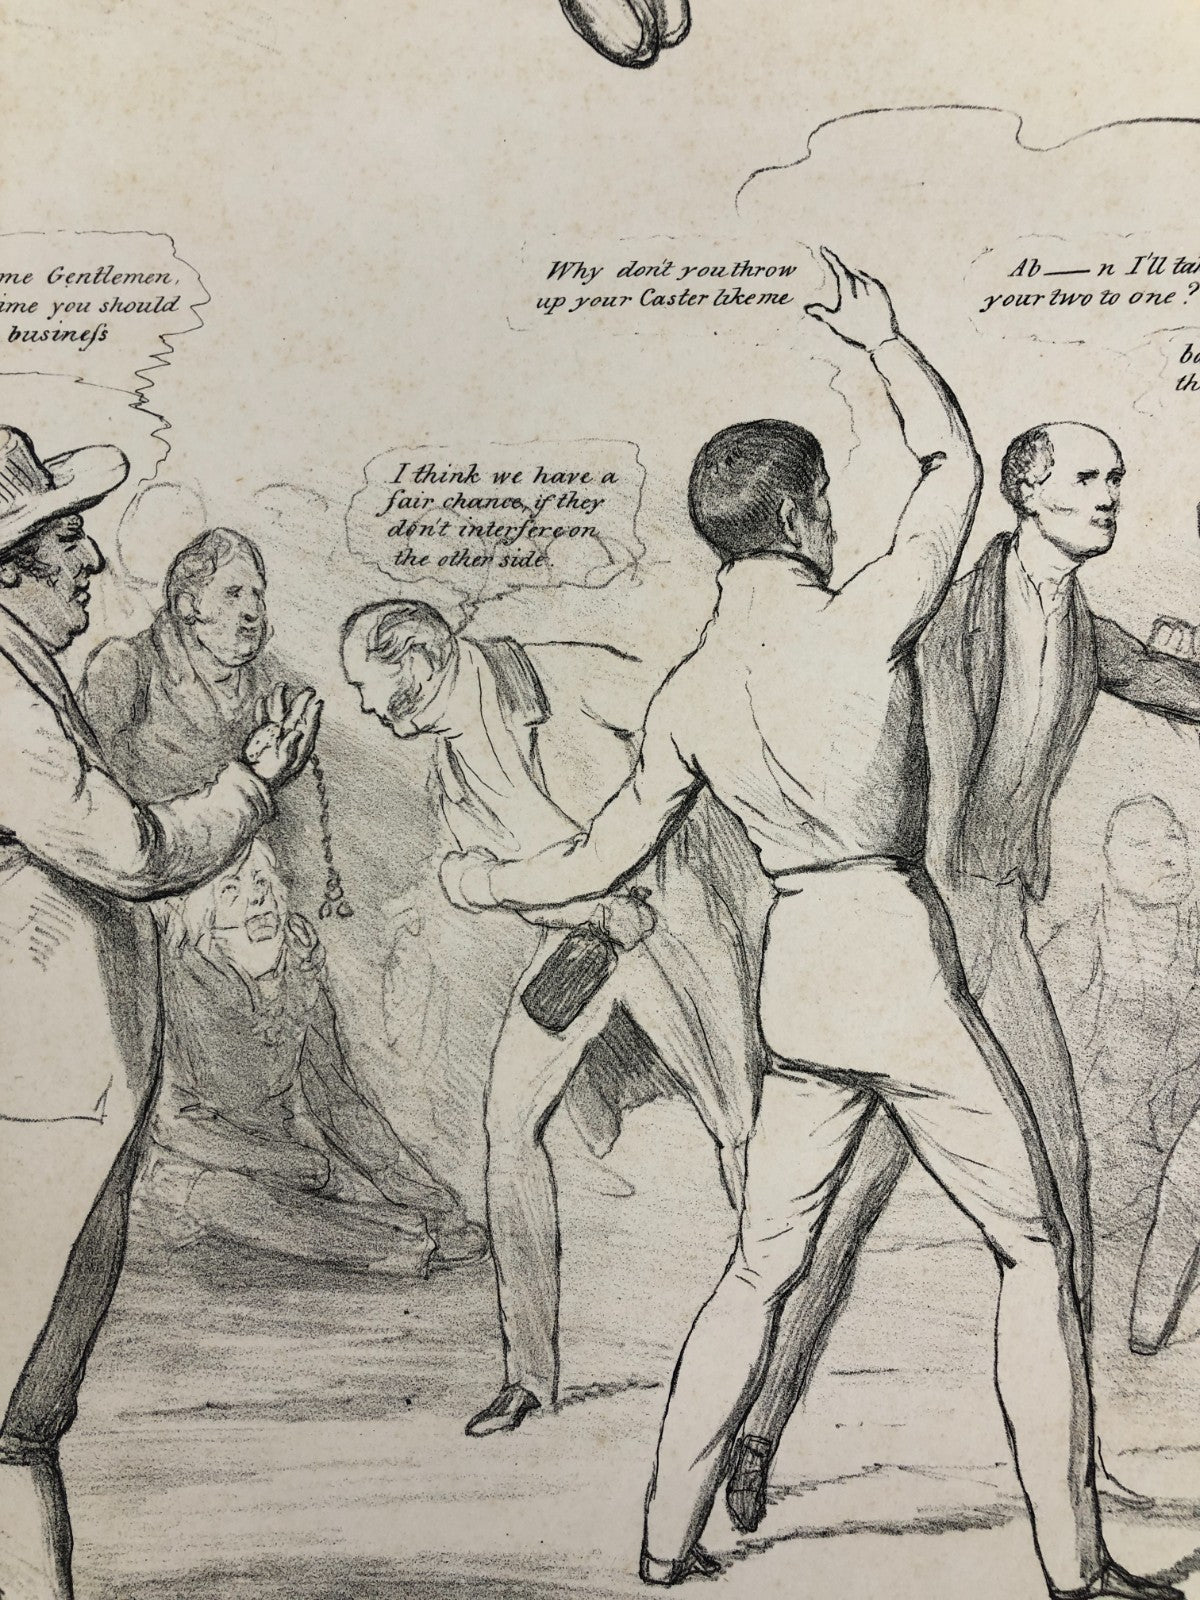 me Gentlemen,
ime you should
busineſs
I think we have a
fair chance, if they
don't interfere on
the other side.
Why don't you throw
up your Caster like me
Ab——n I'll tak
your two to one?
bo
th